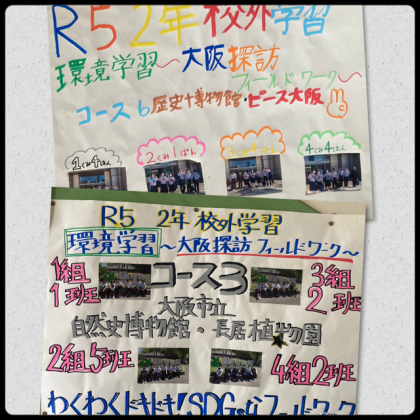 R5 2年 校外学習
環境学習〜大阪探訪
フィールドワーク〜
コース6 歴史博物館・ピース大阪
1くみ4はん
2くみ1ぱん
3くみ4はん
4くみ4はん
R5 2年 校外学習
環境学習〜大阪探訪フィールドワーク〜
1組
1班
コース3
3組
2班
大阪市立
自然史博物館・長居植物園
2組5班
4組2班
わくわくドキドキ!SDGsなフィールドワーク